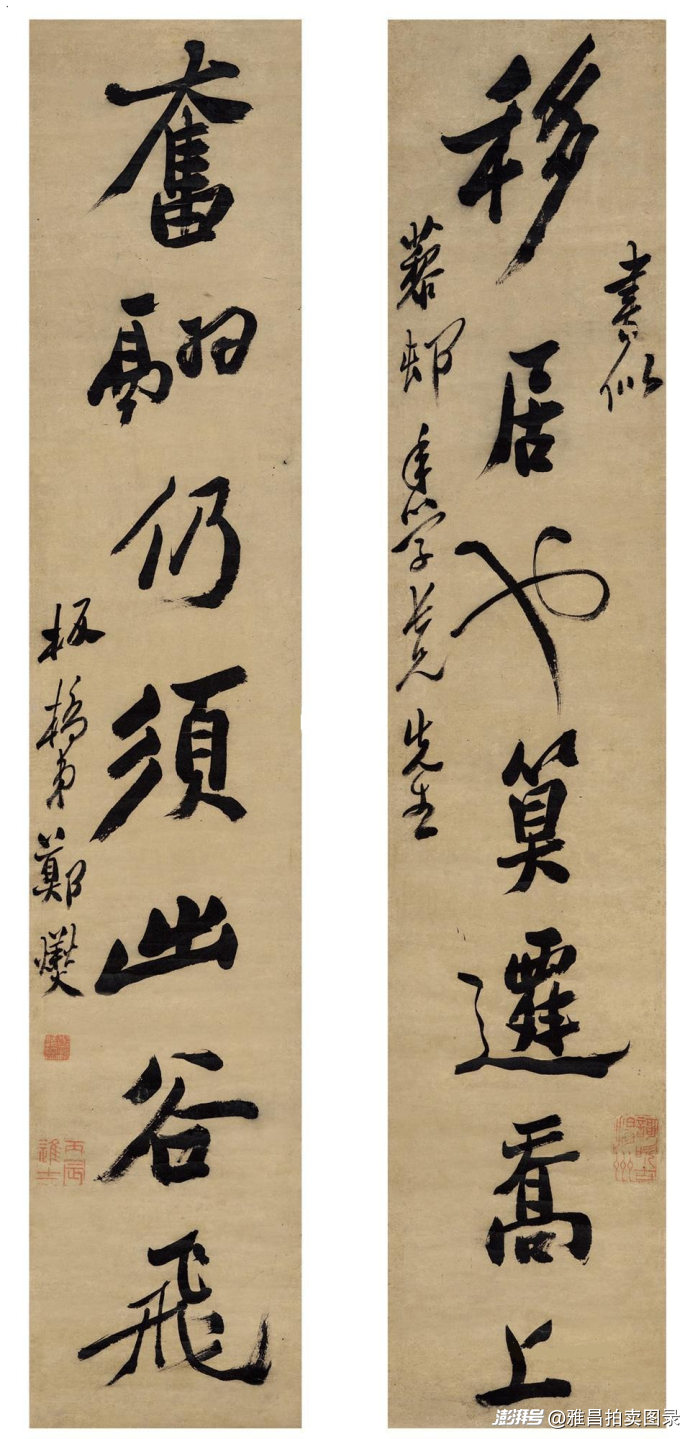 書似
移居也算遷喬上
藜邨年學長兄先生
奮翮仍須出谷飛
板橋弟鄭燮
丙辰進士
澎湃号@雅昌拍卖图录